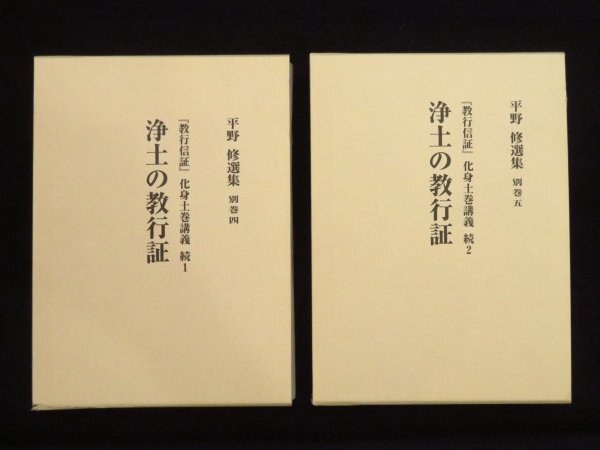 平野 修選集 別巻四
『教行信証』化身土巻講義 続1
浄土の教行証
平野 修選集 別巻五
『教行信証』化身土巻講義 続2
浄土の教行証